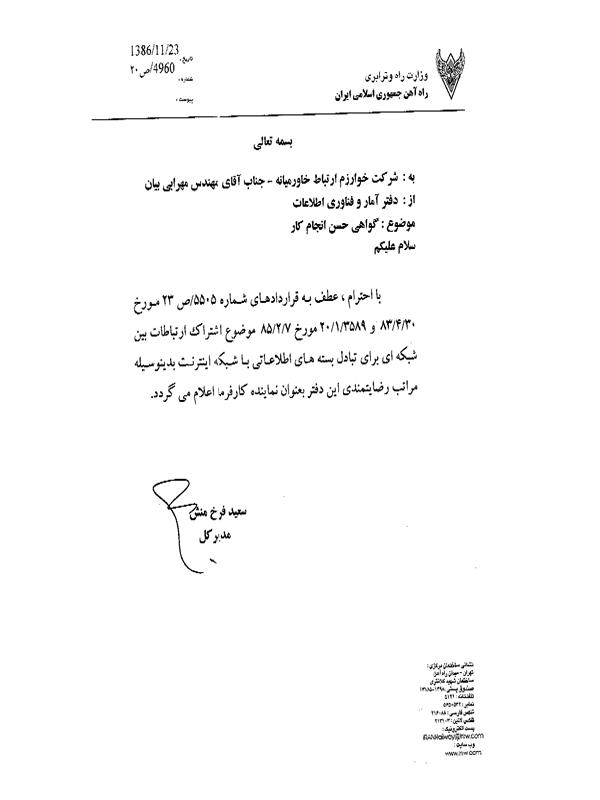 1386/11/23
تاریخ :
4960/ص ۲۰
شماره :
پیوست :
وزارت راه و ترابری
راه آهن جمهوری اسلامی ایران
بسمه تعالی
به : شرکت خوارزم ارتباط خاورمیانه - جناب آقای مهندس مهرابی بیان
از : دفتر آمار و فناوری اطلاعات
موضوع : گواهی حسن انجام کار
سلام علیکم
با احترام ، عطف به قراردادهای شماره ۵۵۰۵/ص ۲۳ مورخ
۸۳/۴/۳۰ و ۲۰/۱/۳۵۸۹ مورخ ۸۵/۲/۷ موضوع اشتراك ارتباطات بین
شبکه ای برای تبادل بسته های اطلاعاتی با شبکه اینترنت بدینوسیله
مراتب رضایتمندی این دفتر بعنوان نماینده کارفرما اعلام می گردد.
سعید فرخ منش
مدیر کل
نشانی ساختمان مرکزی :
تهران - میدان راه آهن
ساختمان شهید کلانتری
صندوق پستی : ۱۳۹۸-۱۳۱۸۵
تلفنخانه : ۵۱۲۱
تلکس فارسی : ۲۱۶۰۸۸
پست الکترونیک :
وب سایت :